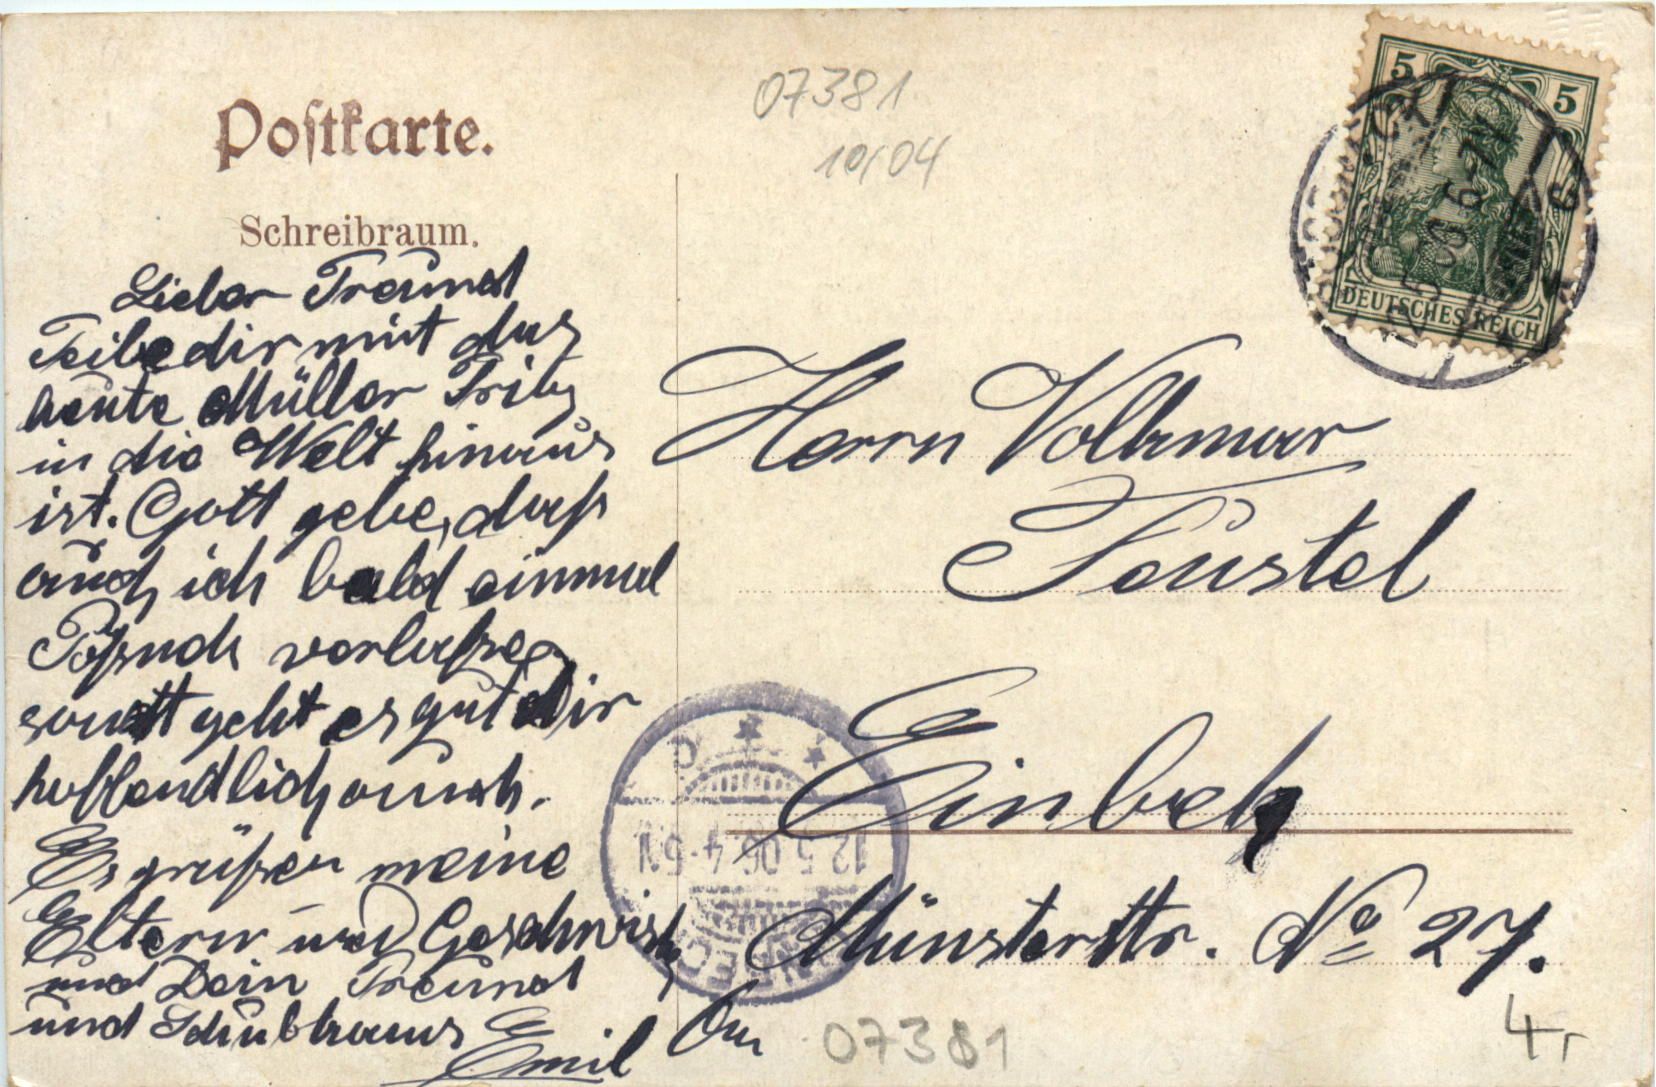 07381
10/04
Postkarte.
Schreibraum.
5 5
DEUTSCHES REICH
Lieber Freund
Teile dir mit das
heute Müller Fritz
in die Welt hinaus
ist. Gott gebe, daß
auch ich bald einmal
Pößneck verlaße,
sonst geht es gut dir
hoffendlich auch.
Es grüßen meine
Eltern und Geschwist
und Dein Freund
und
Emil
Herrn Volkmar
Feustel
Einbek
Münsterstr. No 27.
12.5.06.4-5N
07381
4